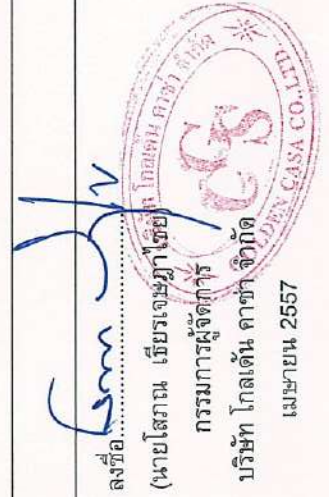 ลงชื่อ
(นายโสภณ เธียรเจษฎาไชย)
กรรมการผู้จัดการ
บริษัท โกลเด้น คาซ่า จำกัด
เมษายน 2557
บริษัท โกลเด้น คาซ่า จำกัด
GOLDEN CASA CO.,LTD.